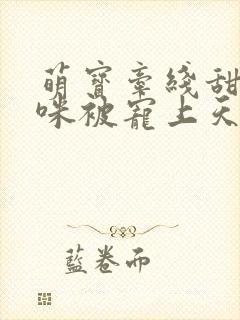 萌寶牽綫甜
咪被寵上天
藍卷而